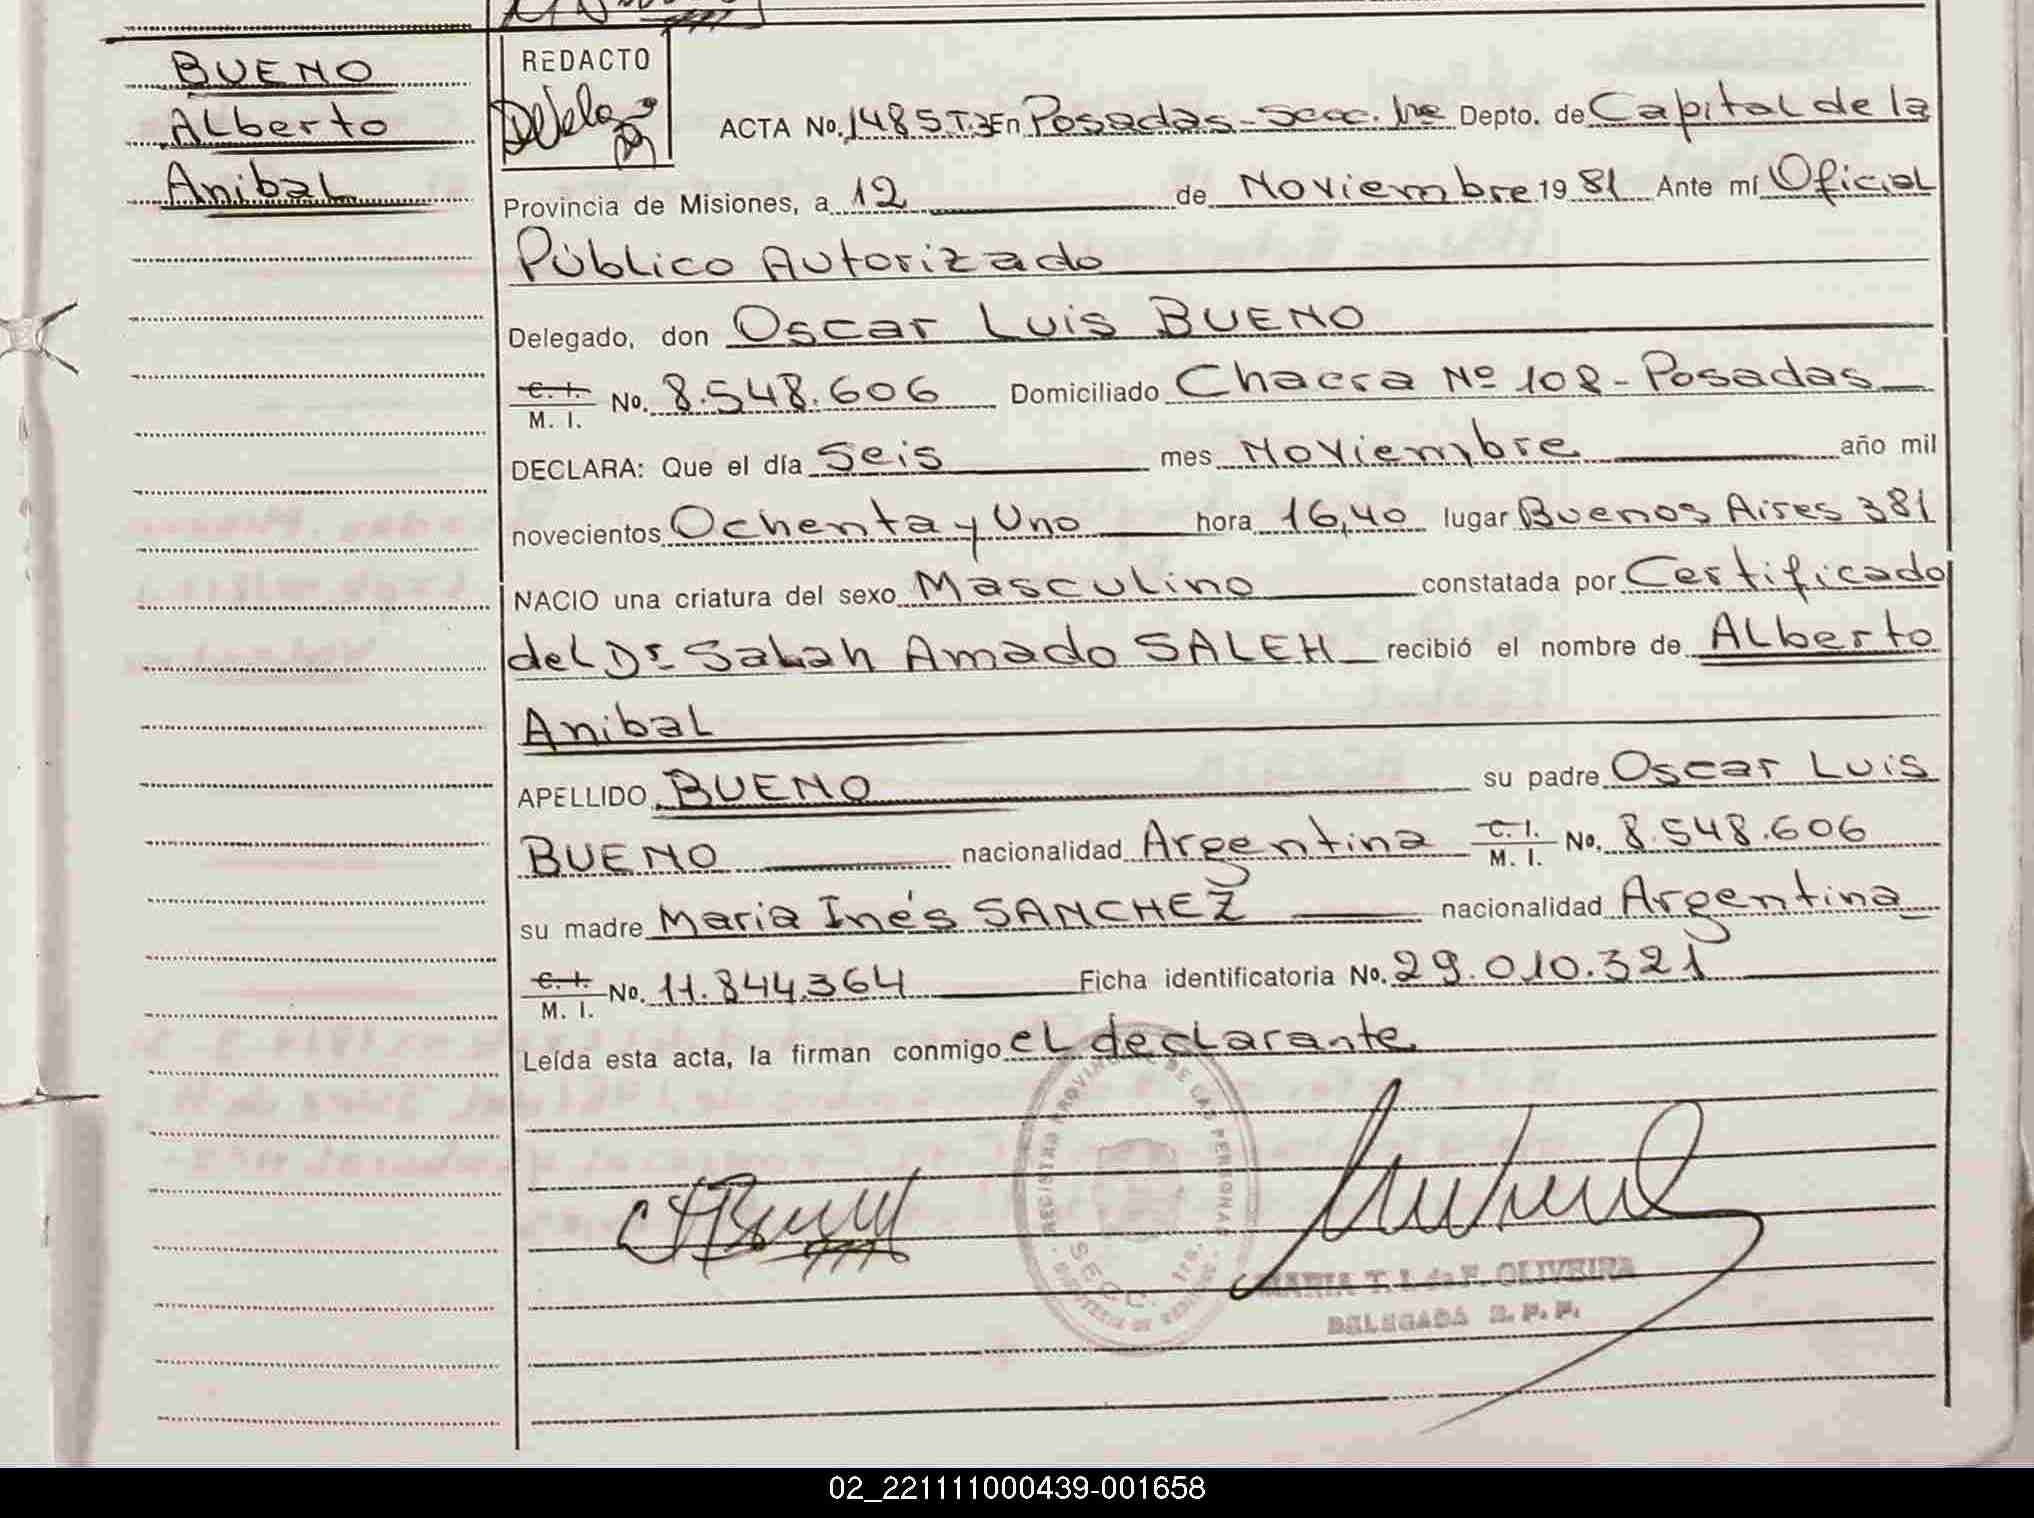 BUENO
Alberto
Anibal
REDACTO
ACTA No. 1485 T.3 En Posadas - Secc. 1ra Depto. de Capital de la
Provincia de Misiones, a 12 de Noviembre 19 81 Ante mí Oficial
Público Autorizado
Delegado, don Oscar Luis BUENO
C. I. / M. I. No. 8.548.606 Domiciliado Chacra Nº 108 - Posadas
DECLARA: Que el día Seis mes Noviembre año mil
novecientos Ochenta y Uno hora 16,40 lugar Buenos Aires 381
NACIO una criatura del sexo Masculino constatada por Certificado
del Dr. Salah Amado SALEH recibió el nombre de Alberto
Anibal
APELLIDO BUENO su padre Oscar Luis
BUENO nacionalidad Argentina C. I. / M. I. No. 8.548.606
su madre Maria Inés SANCHEZ nacionalidad Argentina
C. I. / M. I. No. 11.844.364 Ficha identificatoria No. 29.010.321
Leída esta acta, la firman conmigo el declarante
REGISTRO PROVINCIAL DE LAS PERSONAS
SECC. 1ra.
MARIA T. I. de F. OLIVEIRA
DELEGADA R. P. P.
02_221111000439-001658